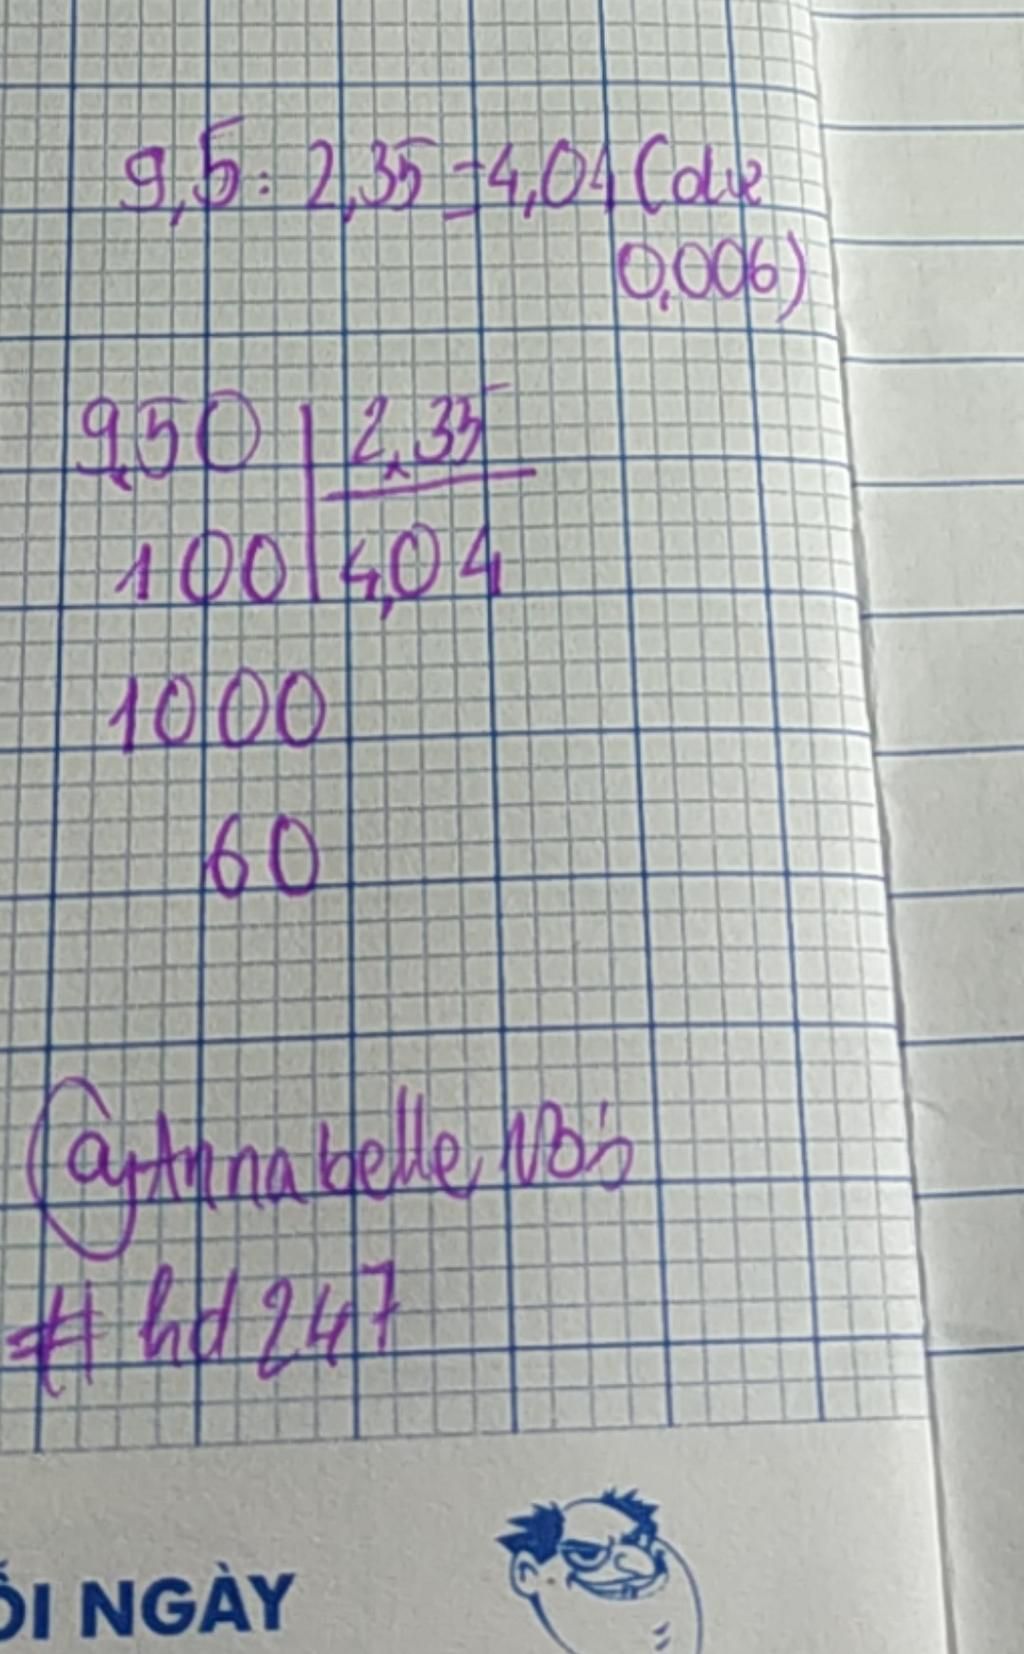 9,5 : 2,35 = 4,04 (dư
0,006)
9,50 2,35
100 4,04
1000
60
@Annabelle
#hd247
ỖI NGÀY